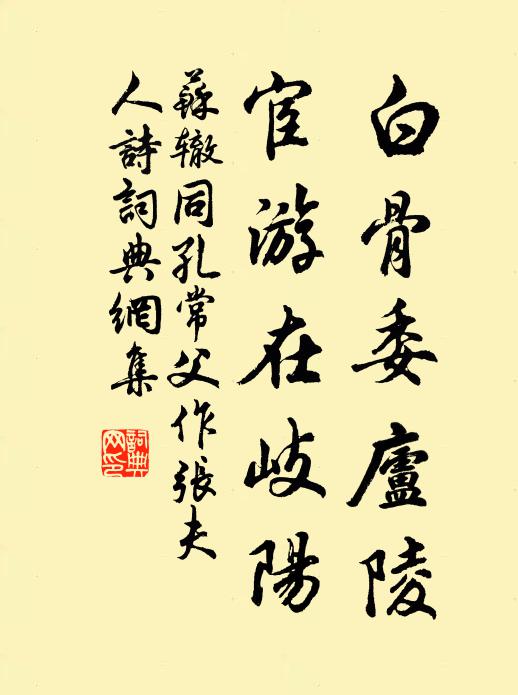 白骨委廬陵
宦游在岐陽
蘇辙同孔常父作張夫
人詩詞典網集
詞典
网印